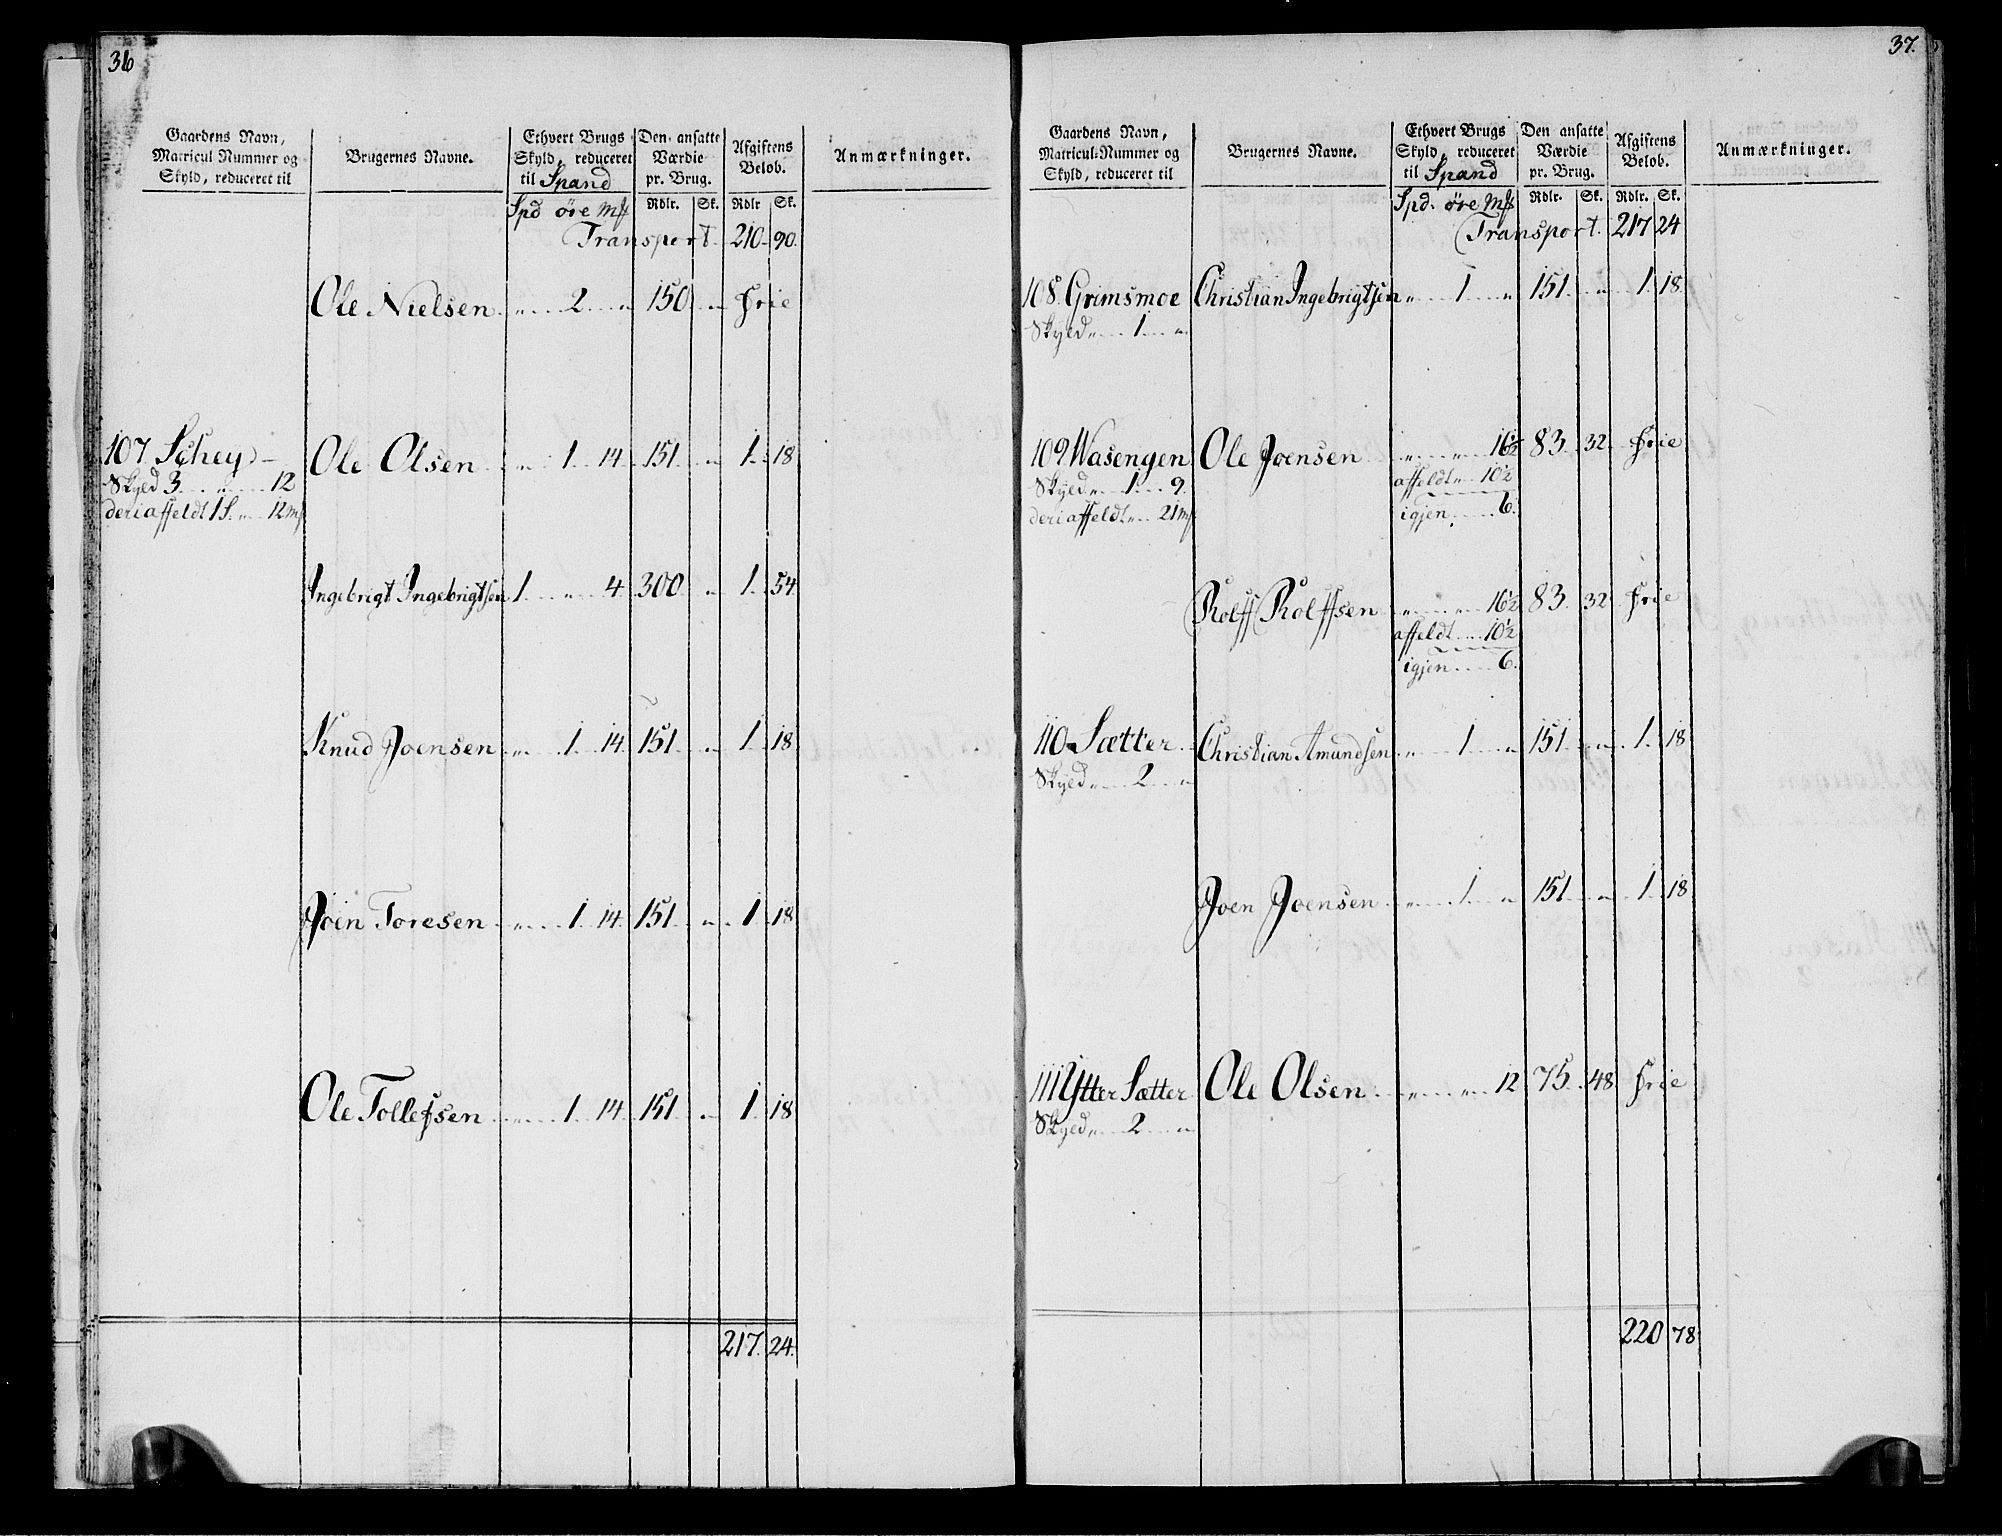 36
Gaardens Navn,
Matricul-Nummer og
Skyld, reduceret til
Brugernes Navne.
Ethvert Brugs
Skyld, reduceret
til Spand
Den ansatte
Værdie
pr. Brug.
Afgiftens
Beløb.
Anmærkninger.
Spd øre mk Rdlr. Sk. Rdlr Sk.
Transport. 210. 90.
Ole Nielsen „ 2. „ 150 „ frie
107 Schey Ole Olsen „ 1 14. 151. „ 1. 18
Skyld 3. „ 12
deri affeldt 1 S. „ 12 mk
Ingebrigt Ingebrigtsen 1 „ 4. 300. „ 1. 54
Knud Joensen „ 1 14. 151. „ 1 18
Joen Toresen „ 1 14. 151. „ 1 18
Ole Tollefsen „ 1 14. 151. „ 1 18
217. 24.
37.
Gaardens Navn,
Matricul-Nummer og
Skyld, reduceret til
Brugernes Navne.
Ethvert Brugs
Skyld, reduceret
til Spand
Den ansatte
Værdie
pr. Brug.
Afgiftens
Beløb.
Anmærkninger.
Spd. øre mk Rdlr. Sk. Rdlr. Sk.
Transport. 217 24
108. Grimsmoe Christian Ingebrigtsen „ 1 „ 151. „ 1. 18.
Skyld „ 1 „
109. Wasengen Ole Joensen „ „ 16½ 83. 32. frie
Skyld „ 1 9. affeldt „ 10½
deri affeldt „ 21 mk igjen 6.
Rolff Rolffsen „ „ 16½ 83. 32 frie
affeldt 10½
igjen 6.
110 Sætter Christian Amundsen „ 1 „ 151. „ 1. 18
Skyld „ 2 „
Joen Joensen „ 1 „ 151. „ 1. 18
111 Ytter Sætter Ole Olsen „ „ 12 75. 48. frie
Skyld „ 2 „
220 78